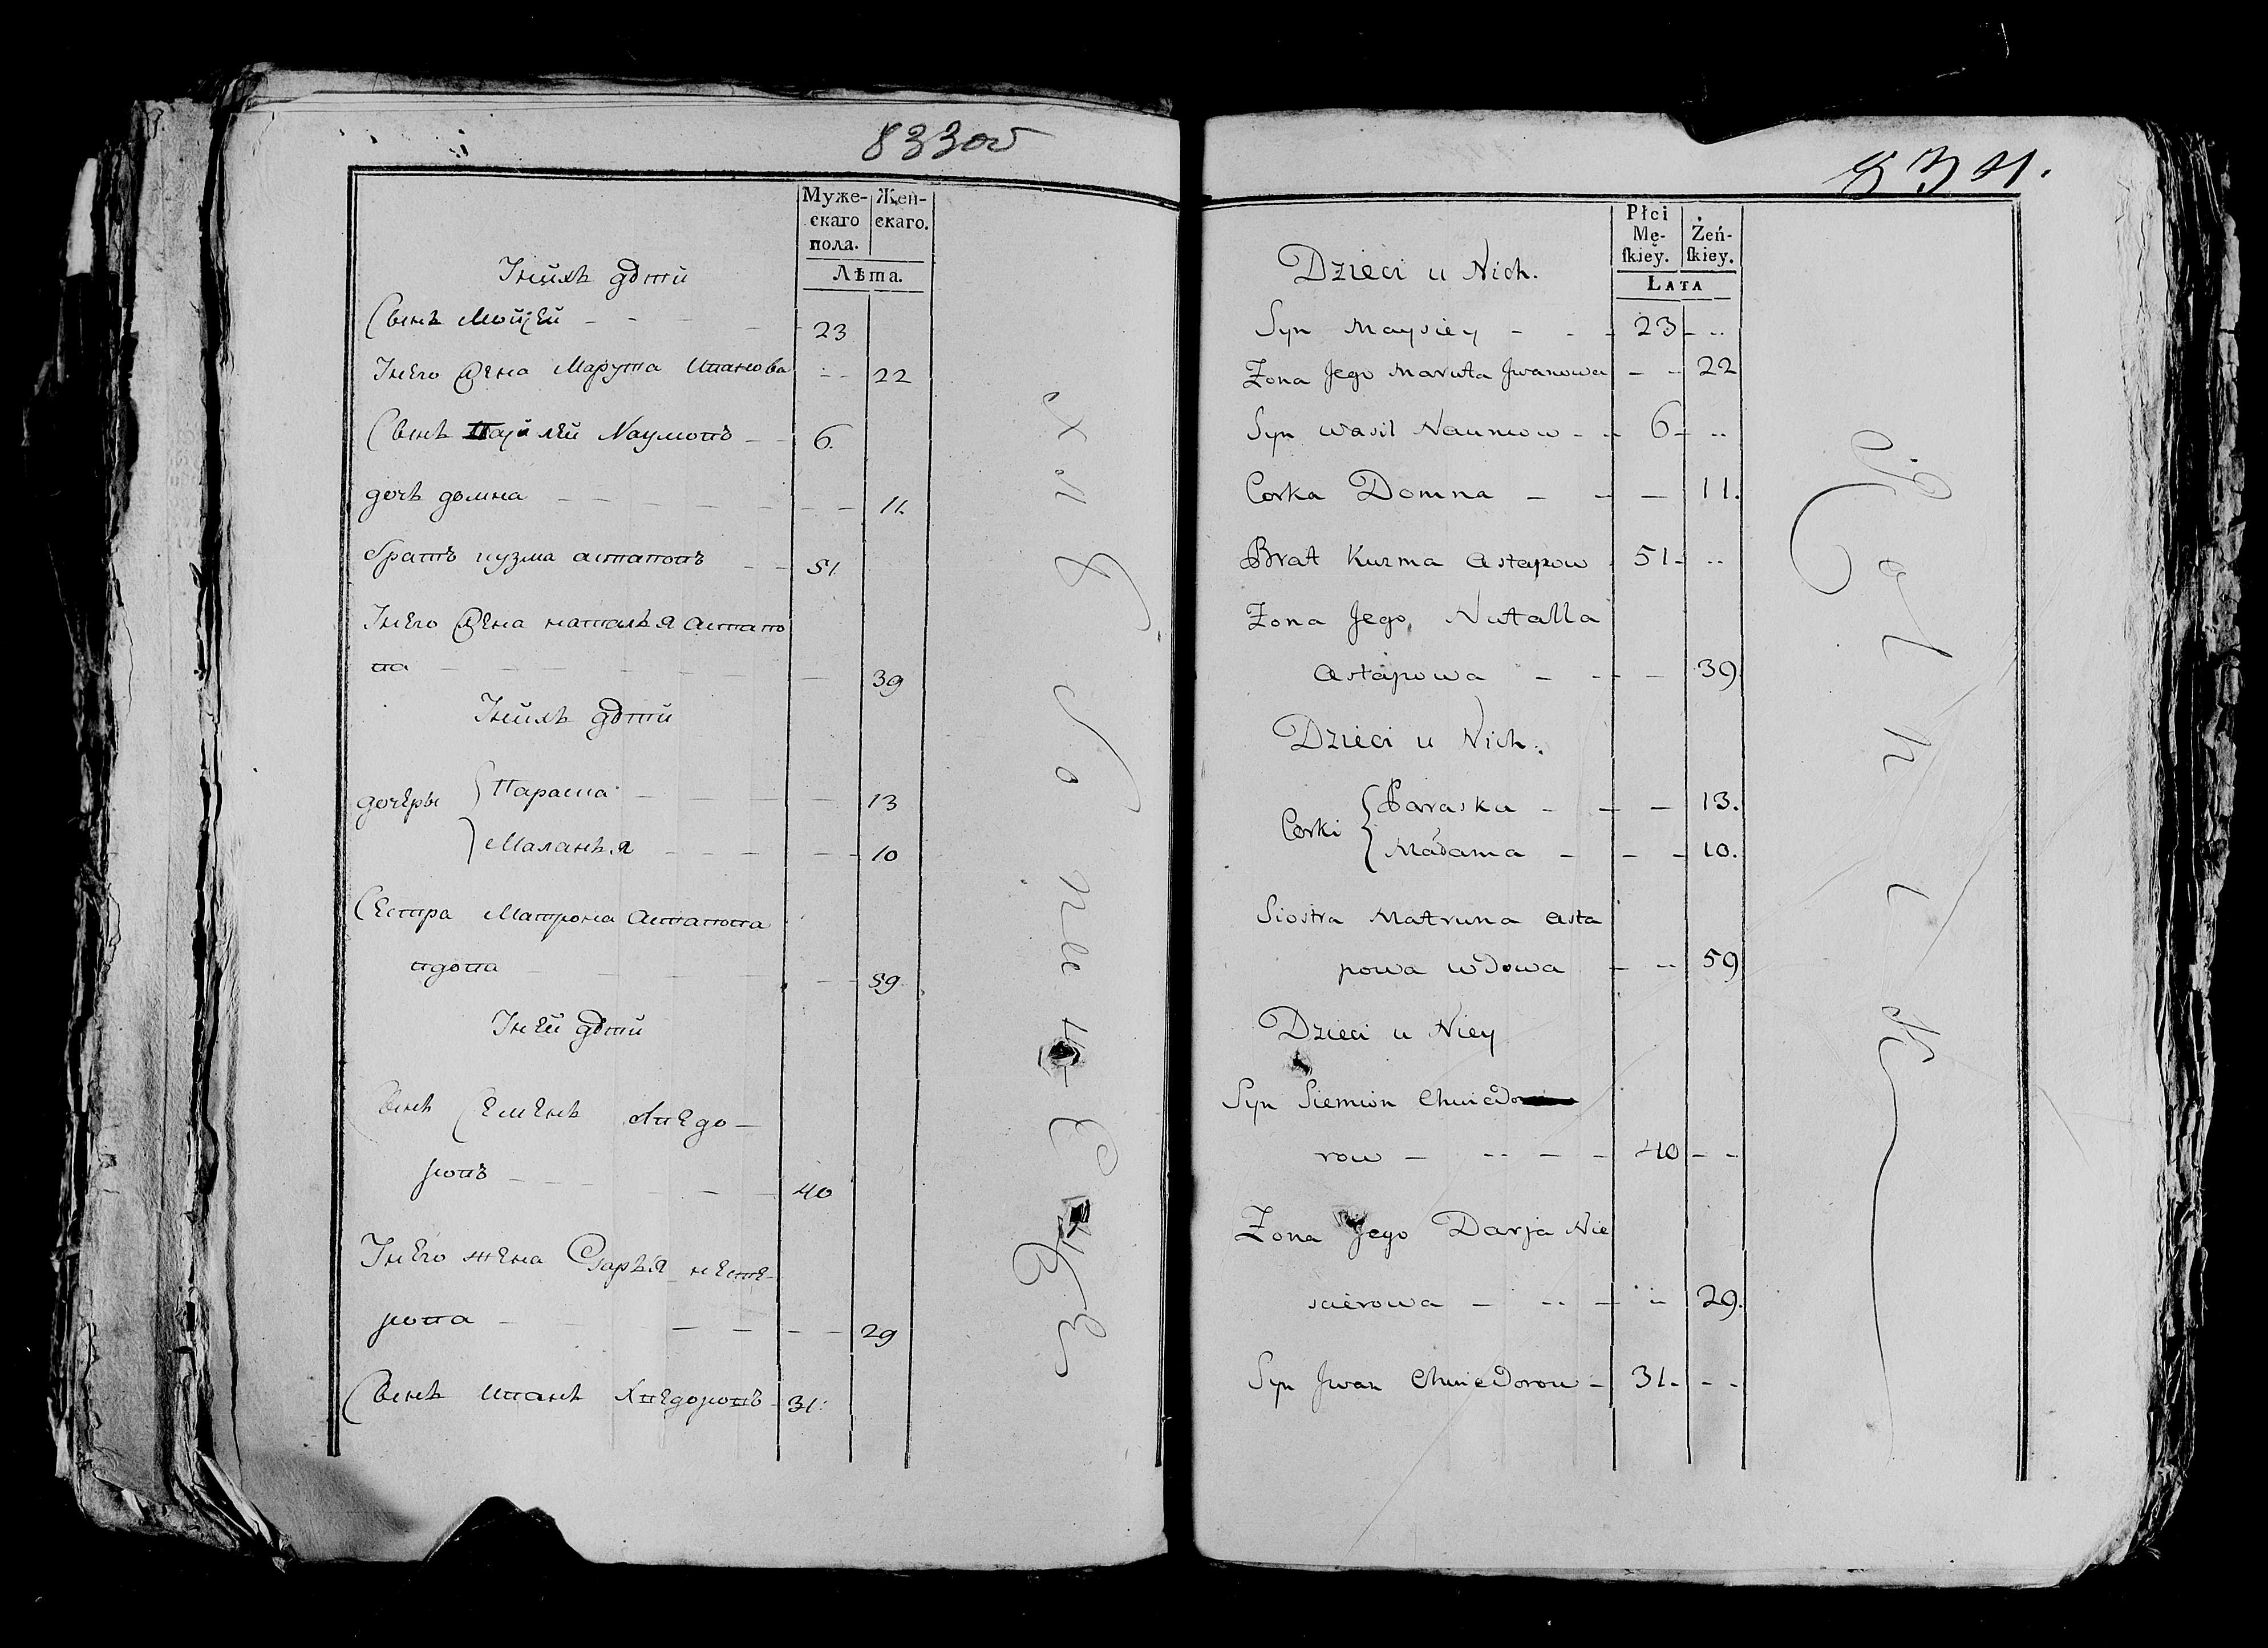 833об
Муже-
скаго
пола.
Жен-
скаго.
Лѣта.
Унихъ дѣти
Сынъ Мойзей - - - - 23
Унего жена Марута Иванова - - 22
Сынъ Василей Наумовъ - - 6.
дочь домна - - - - - - - 11.
братъ кузма астаповъ - - 51
Унего жена наталья астапо
ва - - - - - - - 39
Унихъ дѣти
дочеры { Параска - - - - - 13
Маланья - - - - - 10
Сестра Матрона Астапова
вдова - - - - - - 59
Уней дѣти
Сынъ Семенъ Хведо-
ровъ - - - - - - 40
Унего жена Дарья несте-
рова - - - - - - - 29
Сынъ Иванъ Хведоровъ - 31.
834.
Płci
Mę-
ſkiey.
Żeń-
ſkiey.
LATA
Dzieci u Nich.
Syn Maysiey - - - 23 - ..
Zona Jego Maruta Jwanowa - - 22
Syn Wasil Naumow - - 6 - ..
Corka Domna - - - 11.
Brat Kuzma Astapow - 51 - ..
Zona Jego Natalla
Astapowa - - - 39.
Dzieci u Nich.
Corki { Paraska - - - 13.
Madama - - - 10.
Siostra Matruna Asta
powa wdowa - - 59
Dzieci u Niey
Syn Siemion Chwiedo
row - - - - 40 - -
Zona Jego Darja Nie
scierowa - - - - 29.
Syn Jwan Chwiedorow - 31 - - -